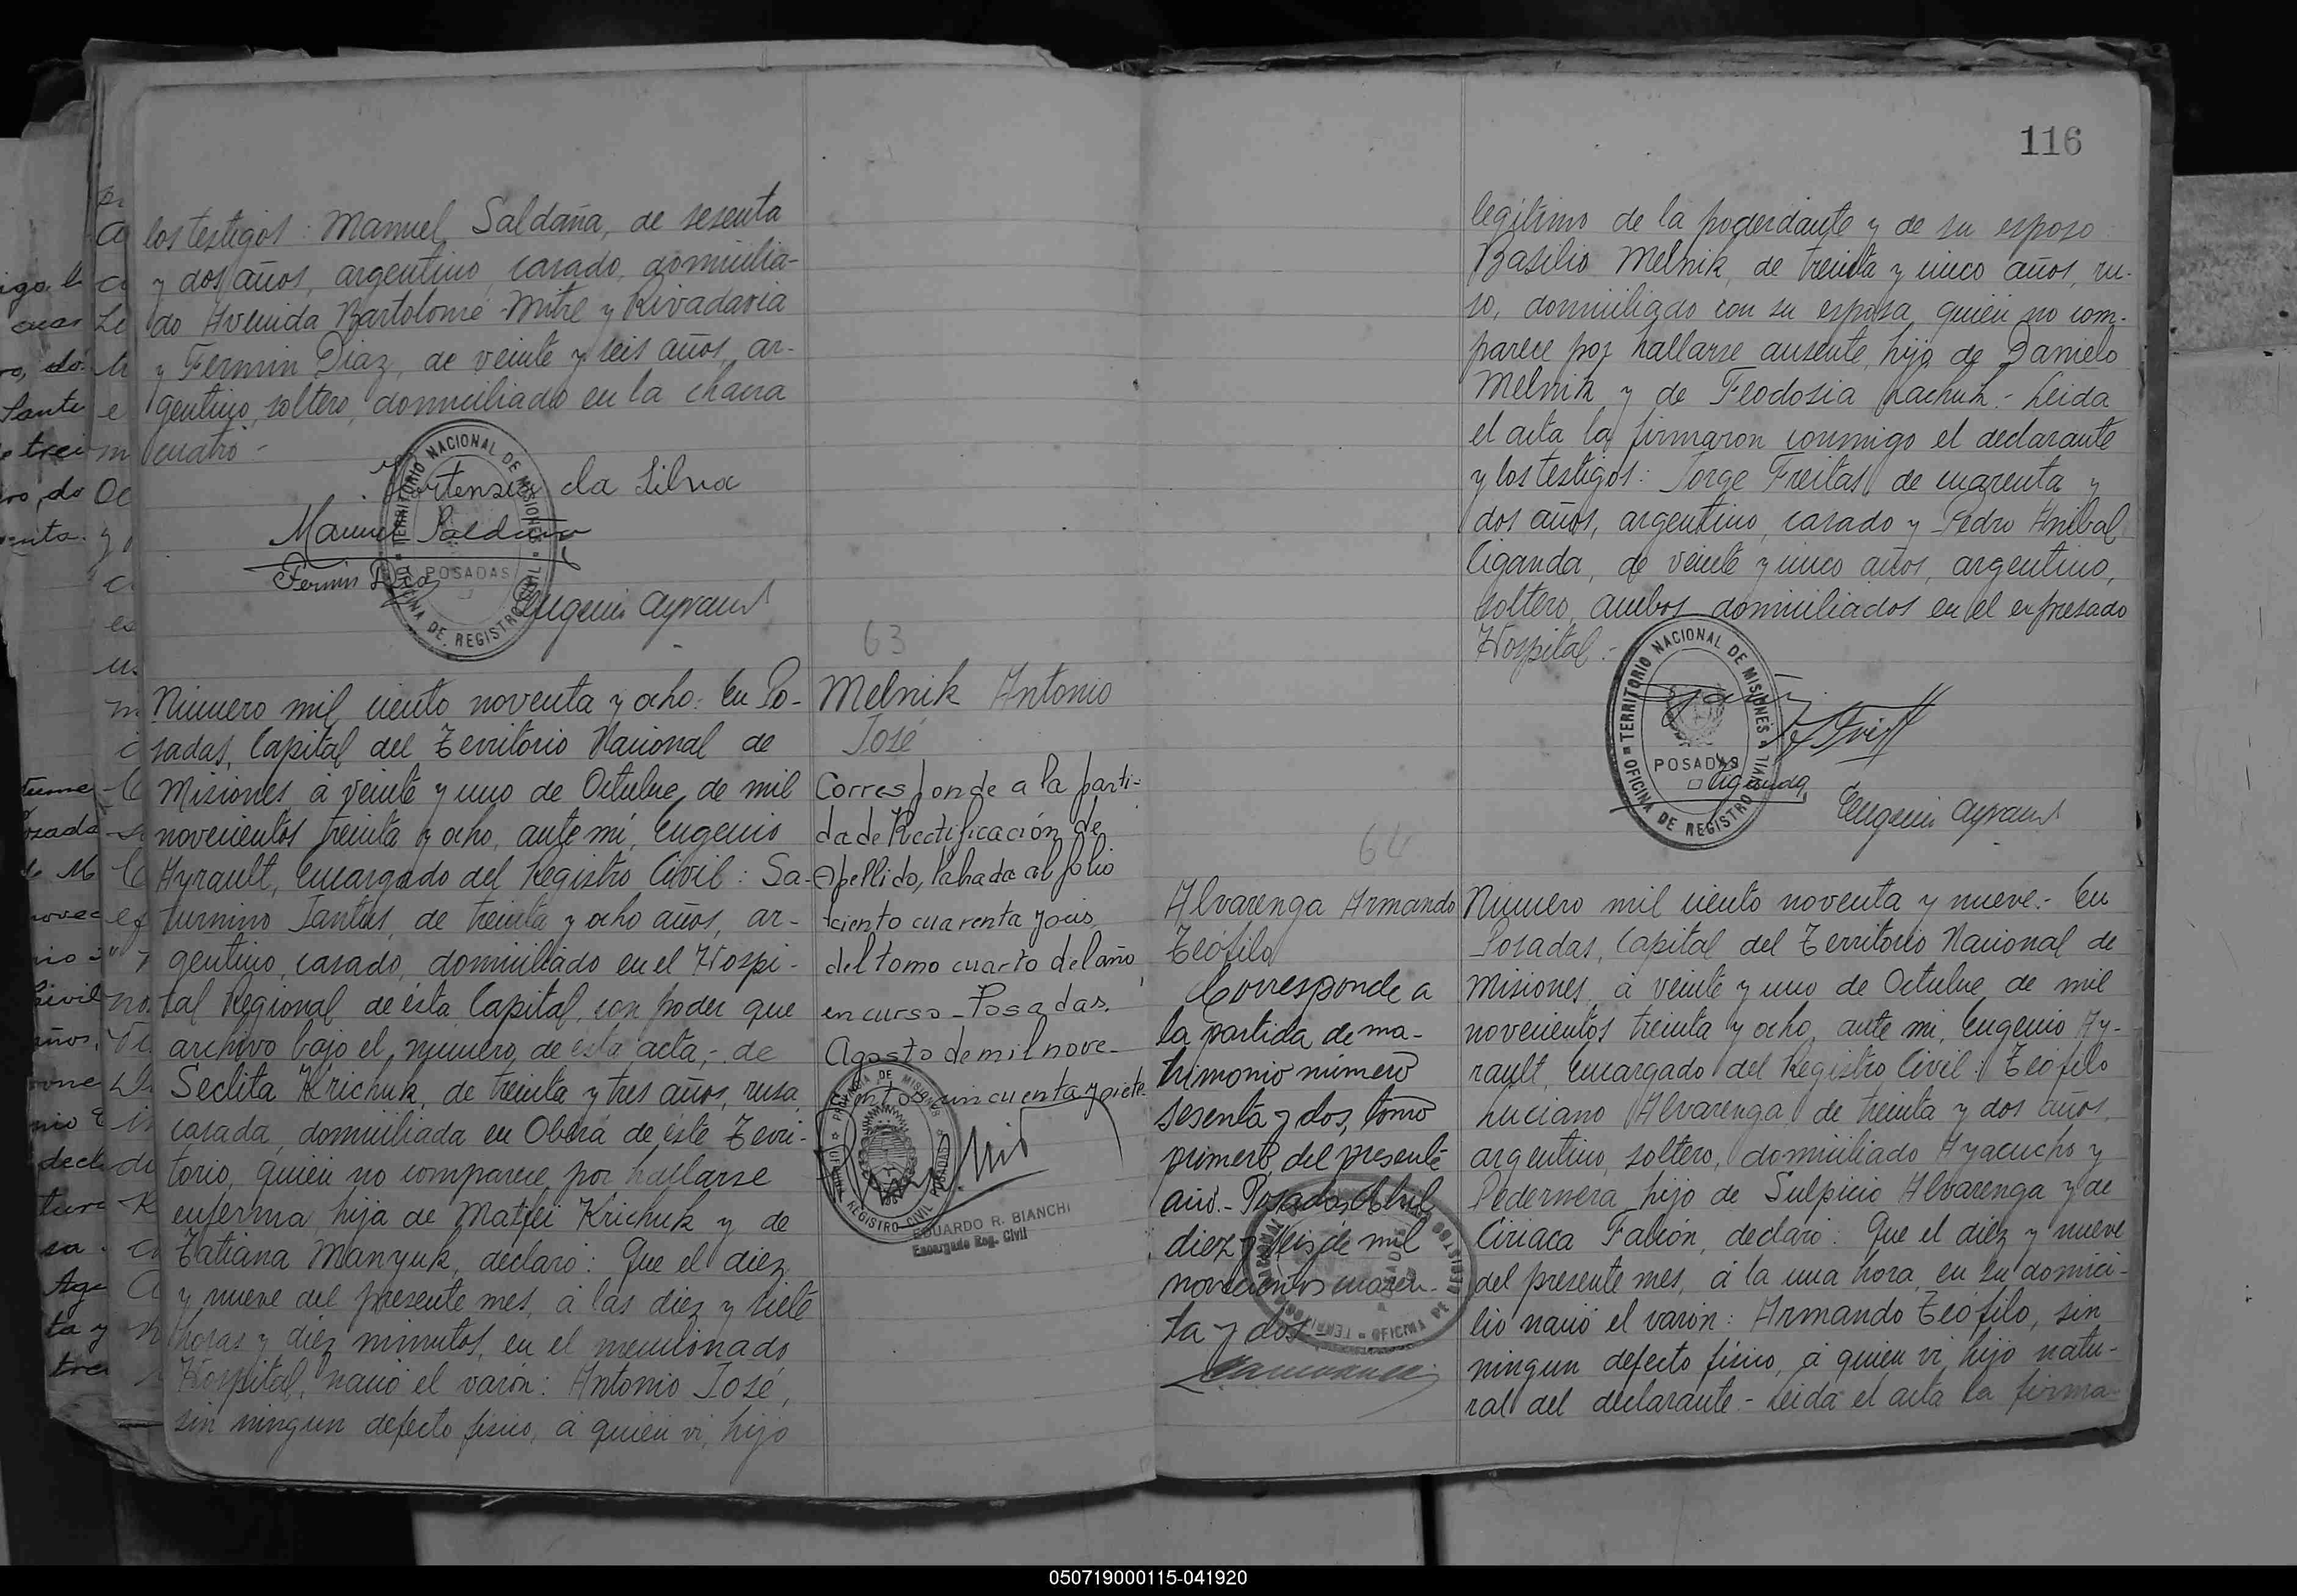 los testigos: Manuel Saldaña, de sesenta
y dos años, argentino, casado, domicilia-
do Avenida Bartolomé Mitre y Rivadavia
y Fermin Diaz, de veinte y seis años, ar-
gentino, soltero, domiciliado en la chacra
cuatro -
Hortensio da Silva
Manuel Saldaña
Fermin Diaz
Eugenio Ayrault
TERRITORIO NACIONAL DE MISIONES
POSADAS
OFICINA DE REGISTRO CIVIL
63
Numero mil ciento noventa y ocho: En Po-
sadas, Capital del Territorio Nacional de
Misiones á veinte y uno de Octubre de mil
novecientos treinta y ocho, ante mí, Eugenio
Ayrault, Encargado del Registro Civil: Sa-
turnino Santus, de treinta y ocho años, ar-
gentino, casado, domiciliado en el Hospi-
tal Regional de ésta Capital, con poder que
archivo bajo el numero de esta acta,- de
Seclita Krichuk, de treinta y tres años, rusa,
casada, domiciliada en Oberá de éste Terri-
torio, quien no comparece por hallarse
enferma, hija de Matfei Krichuk y de
Tatiana Manyuk, declaró: Que el diez
y nueve del presente mes, á las diez y siete
horas y diez minutos, en el mencionado
Hospital, nació el varón: Antonio José,
sin ningun defecto físico, á quien ví, hijo
Melnik Antonio
José
Corresponde a la parti-
da de Rectificación de
Apellido, labrada al folio
ciento cuarenta y seis
del tomo cuarto del año
en curso - Posadas,
Agosto de mil nove-
cientos cincuenta y siete.
PROVINCIA DE MISIONES
POSADAS
REGISTRO CIVIL
EDUARDO R. BIANCHI
Encargado Reg. Civil
116
legítimo de la poderdante y de su esposo
Basilio Melnik, de treinta y cinco años, ru-
so, domiciliado con su esposa, quien no com-
parece por hallarse ausente, hijo de Danielo
Melnik y de Feodosia Lachuk.- Leida
el acta la firmaron conmigo el declarante
y los testigos: Jorge Freitas, de cuarenta y
dos años, argentino, casado y Pedro Anibal
Ciganda, de veinte y cinco años, argentino,
soltero, ambos domiciliados en el expresado
Hospital.-
TERRITORIO NACIONAL DE MISIONES
POSADAS
OFICINA DE REGISTRO CIVIL
Ciganda
Eugenio Ayrault
64
Alvarenga Armando
Teófilo
Corresponde a
la partida de ma-
trimonio número
sesenta y dos, tomo
primero del presente
año.- Posadas, Abril
diez y seis de mil
novecientos cuaren-
ta y dos -
Numero mil ciento noventa y nueve.- En
Posadas, Capital del Territorio Nacional de
Misiones, á veinte y uno de Octubre de mil
novecientos treinta y ocho, ante mí, Eugenio Ay-
rault, Encargado del Registro Civil: Teófilo
Luciano Alvarenga, de treinta y dos años,
argentino, soltero, domiciliado Ayacucho y
Pedernera, hijo de Sulpicio Alvarenga y de
Ciriaca Falcón, declaró: Que el diez y nueve
del presente mes, á la una hora, en su domici-
lio nació el varón: Armando Teófilo, sin
ningun defecto físico, á quien ví, hijo natu-
ral del declarante.- Leida el acta la firma-
050719000115-041920